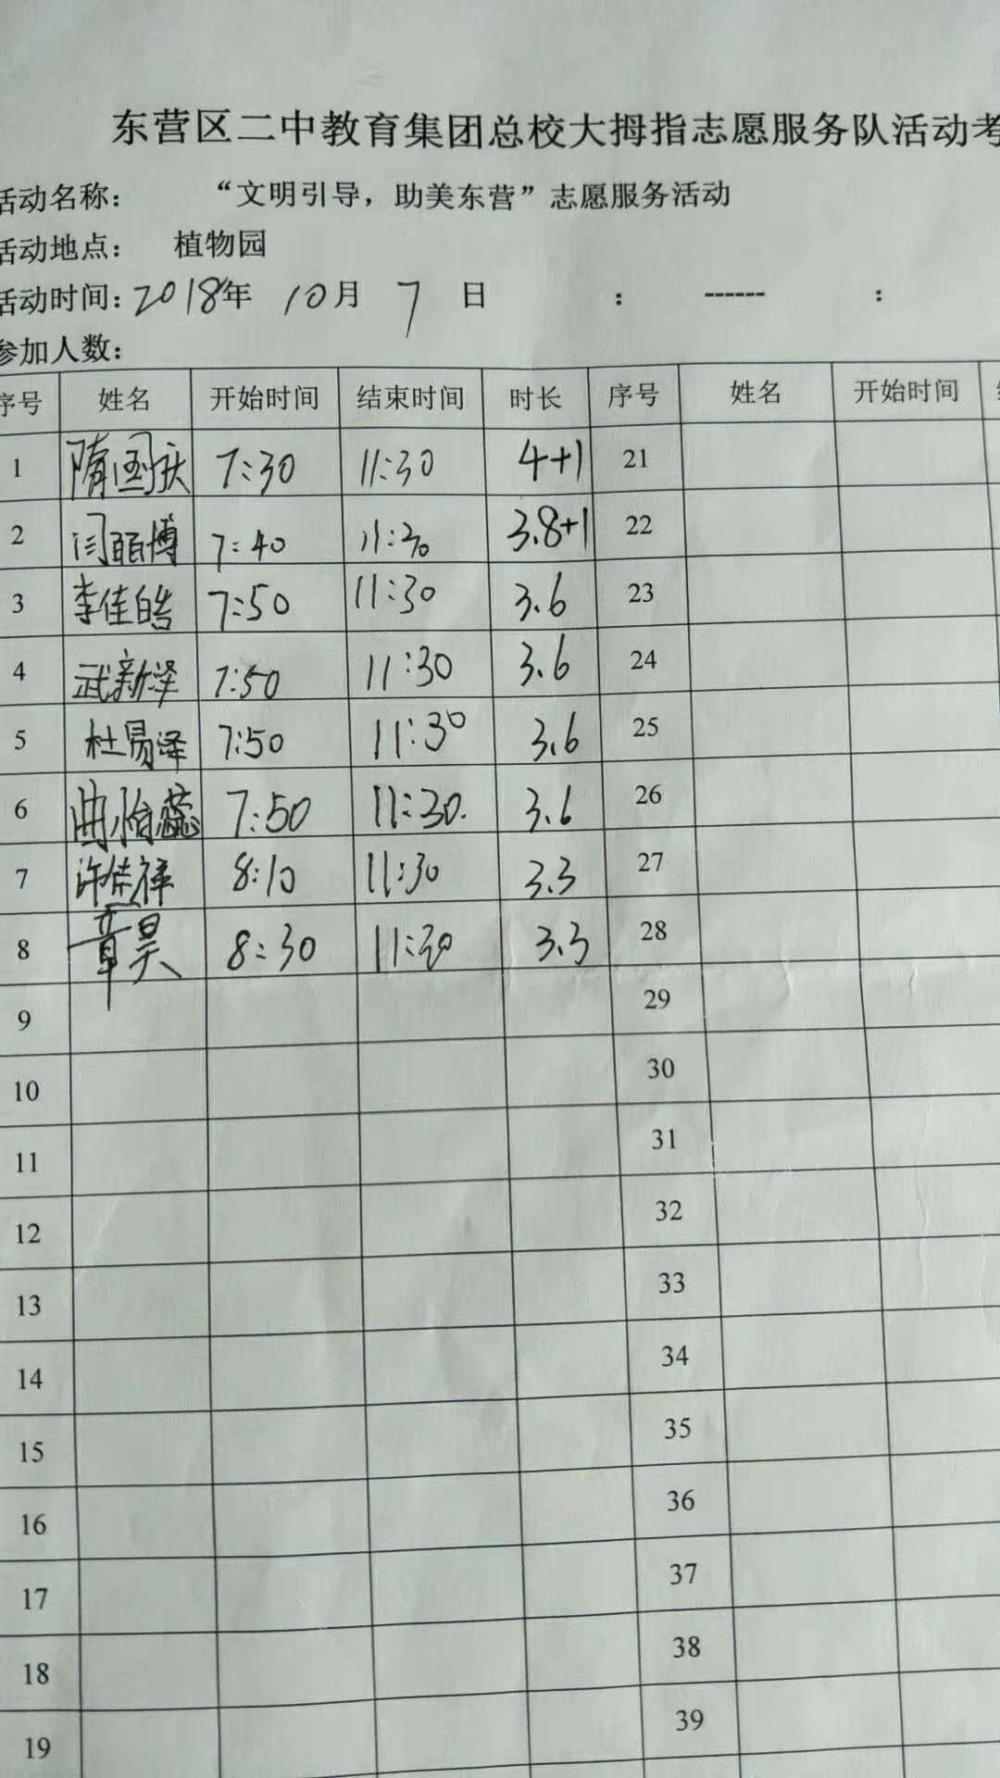 东营区二中教育集团总校大拇指志愿服务队活动考
活动名称： “文明引导，助美东营”志愿服务活动
活动地点： 植物园
活动时间：2018年 10月 7 日 ： ------ ：
参加人数：
序号 姓名 开始时间 结束时间 时长 序号 姓名 开始时间
1 隋国庆 7:30 11:30 4+1 21
2 闫 博 7:40 11:30 3.8+1 22
3 李佳皓 7:50 11:30 3.6 23
4 武新泽 7:50 11:30 3.6 24
5 杜易泽 7:50 11:30 3.6 25
6 曲怡蕊 7:50 11:30. 3.6 26
7 许佳祥 8:10 11:30 3.3 27
8 章昊 8:30 11:30 3.3 28
9 29
10 30
11 31
12 32
13 33
14 34
15 35
16 36
17 37
18 38
19 39